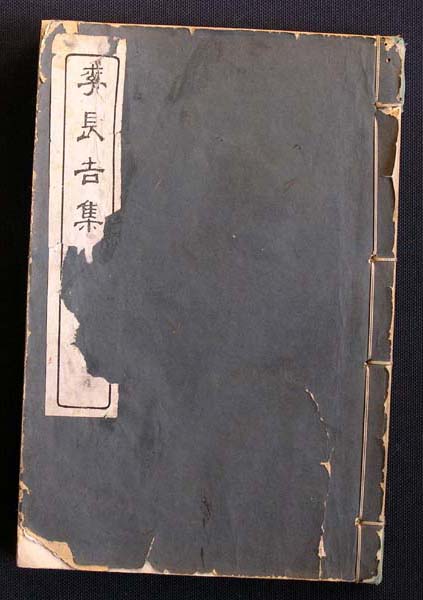 李長吉集